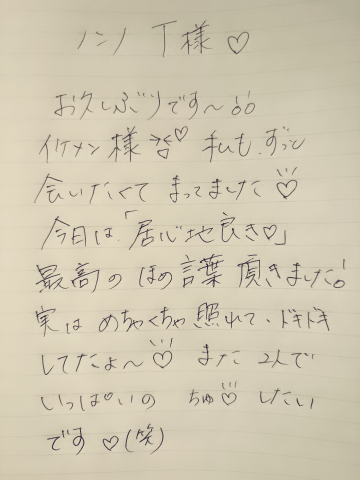 ノンノ T様♡
お久しぶりです〜!!
イケメン様 ♡ 私も、ずっと
会いたくて まってました♡
今日は「居心地良き♡」
最高の ほめ言葉 頂きました!
実は めちゃくちゃ 照れて、ドキドキ
してたよ〜♡ また 2人で
いっぱいの ちゅ♡ したい
です ♡(笑)